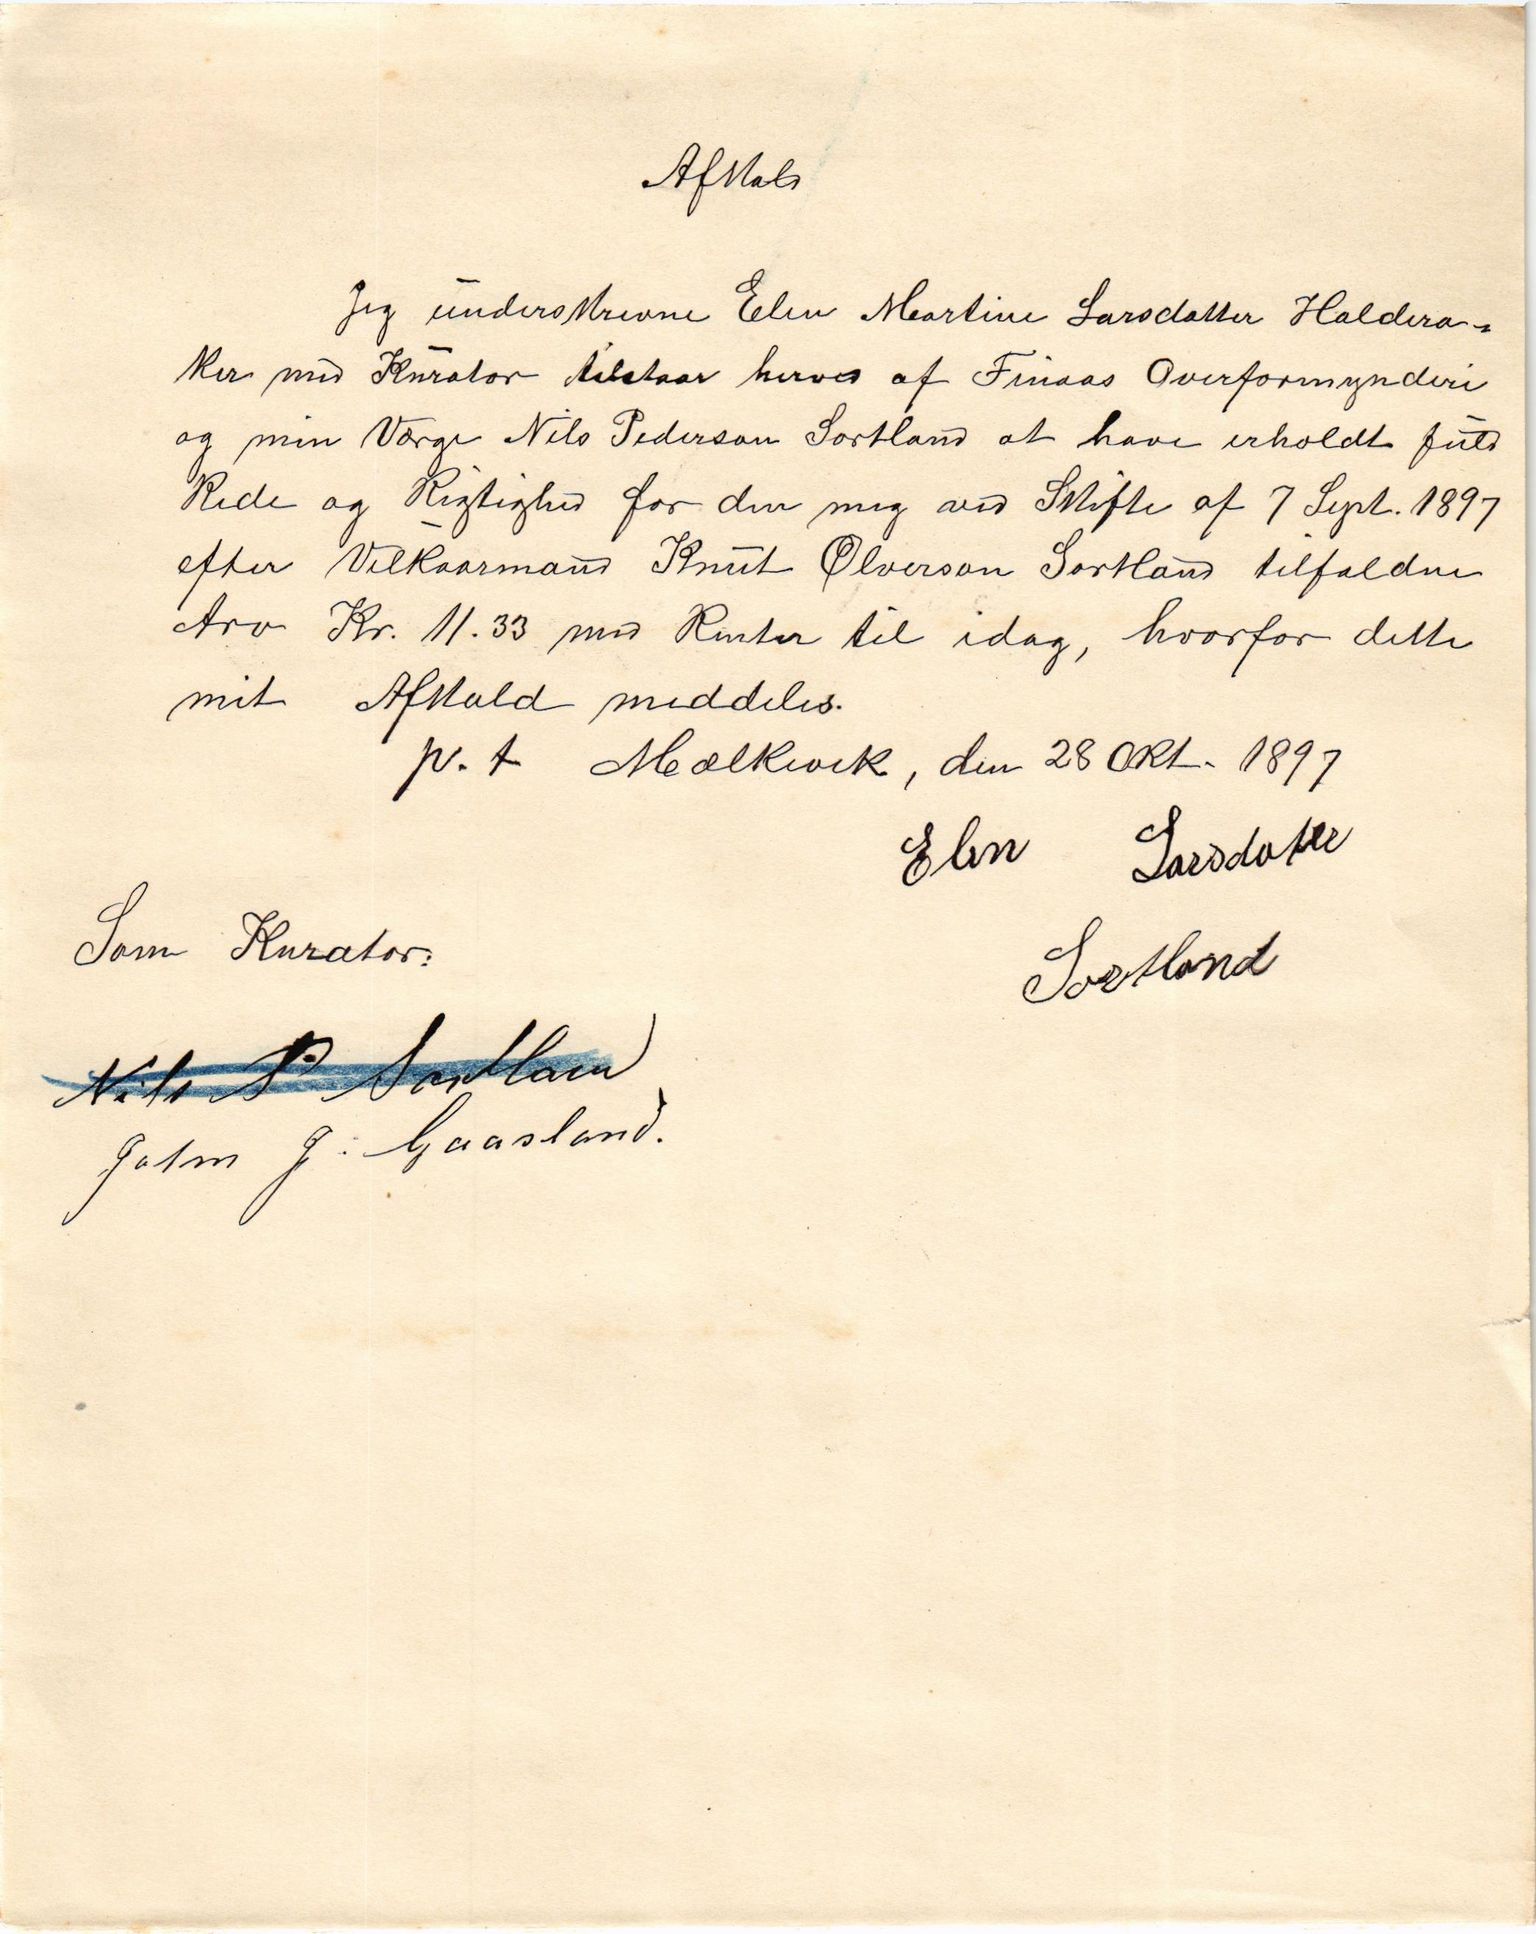 Afkald
Jeg underskrevne Elen Martine Larsdatter Haldera-
ker med Kurator tilstaar herved af Finaas Overformynderi
og min Værge Nils Pederson Sortland at have erholdt fuld
Rede og Rigtighed for den mig ved Skifte af 7 Sept. 1897
efter Vilkaarmand Knut Ølverson Sortland tilfaldne
Arv Kr. 11.33 med Renter til idag, hvorfor dette
mit Afkald meddeles.
p. t Mælkevik, den 28 Okt. 1897
Elen Larsdatter
Sortland
Som Kurator:
Nils P Sortland
J. Gaasland.